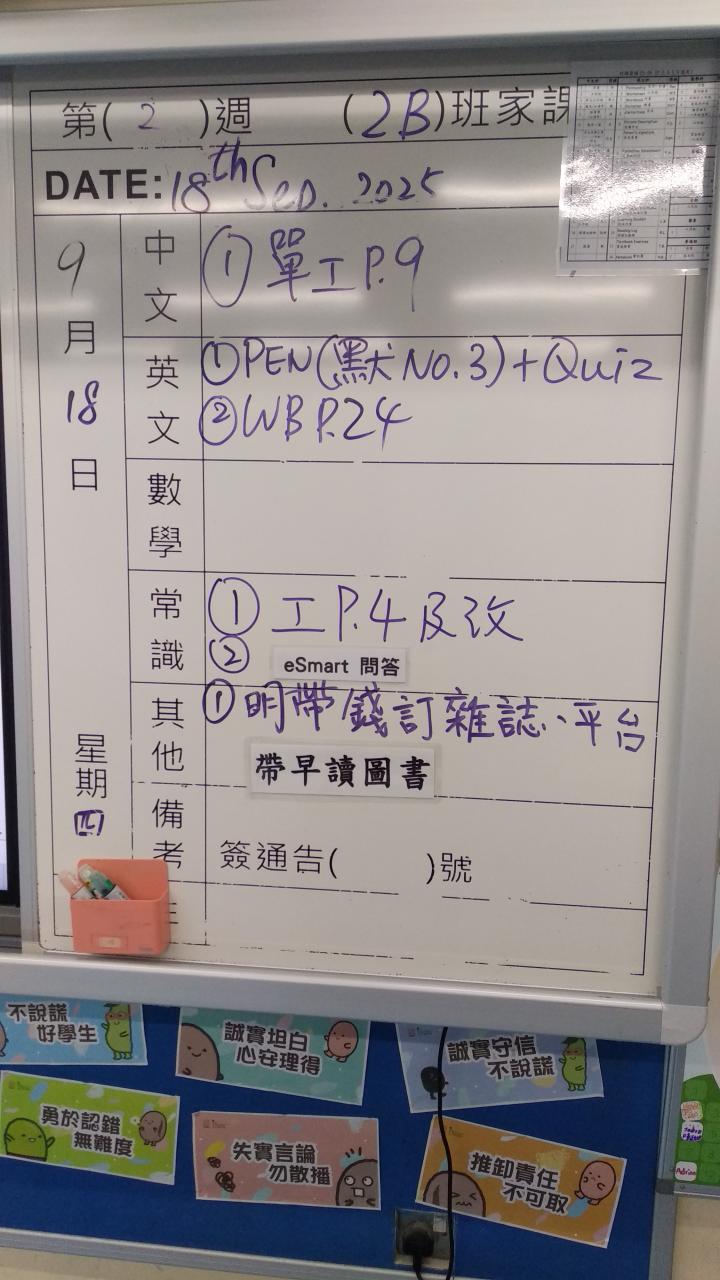 第( 2 )週 (2B)班家課
DATE: 18th Sep. 2025
9月18日
星期四
中文
① 單工P.9
英文
① PEN(默No.3)+Quiz
② WB P.24
數學
常識
① 工P.4及改
② eSmart 問答
其他
① 明帶錢訂雜誌、平台
帶早讀圖書
備考
簽通告( )號
不說謊
好學生
誠實坦白
心安理得
誠實守信
不說謊
勇於認錯
無難度
失實言論
勿散播
推卸責任
不可取
Adrian